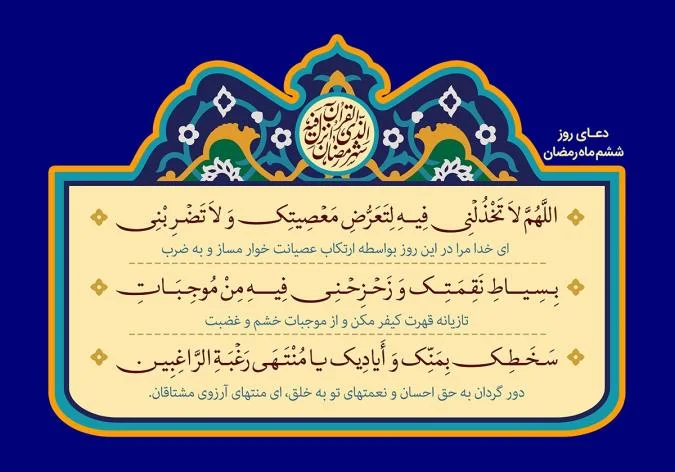 شهر رمضان الذی انزل فیه القرآن
دعـای روز
ششم ماه رمضان
اللَّهُمَّ لاَ تَخْذُلْنِی فِیـهِ لِتَعَرُّضِ مَعْصِیَتِکَ وَ لاَ تَضْرِبْنِی
ای خدا مرا در این روز بواسطه ارتکاب عصیانت خوار مساز و به ضرب
بِـسِیَـاطِ نَقِمَتِـکَ وَ زَحْزِحْنِـی فِیـهِ مِنْ مُوجِبَـاتِ
تازیانه قهرت کیفر مکن و از موجبات خشم و غضبت
سَخَـطِـکَ بِمَنِّـکَ وَ أَیَادِیکَ یـا مُنْتَـهَی رَغْبَـةِ الرَّاغِبِیـنَ
دور گردان به حق احسان و نعمتهای تو به خلق، ای منتهای آرزوی مشتاقان.